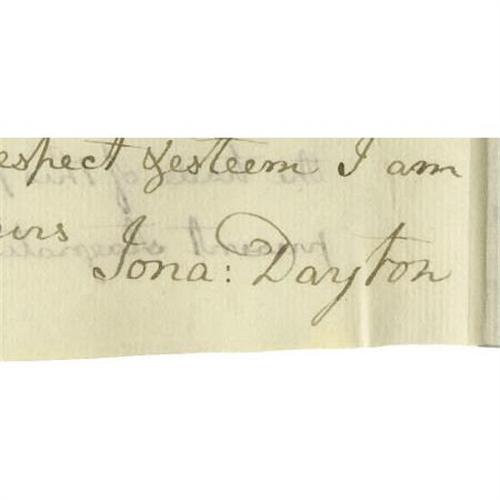 espect & esteem I am
urs Jona: Dayton